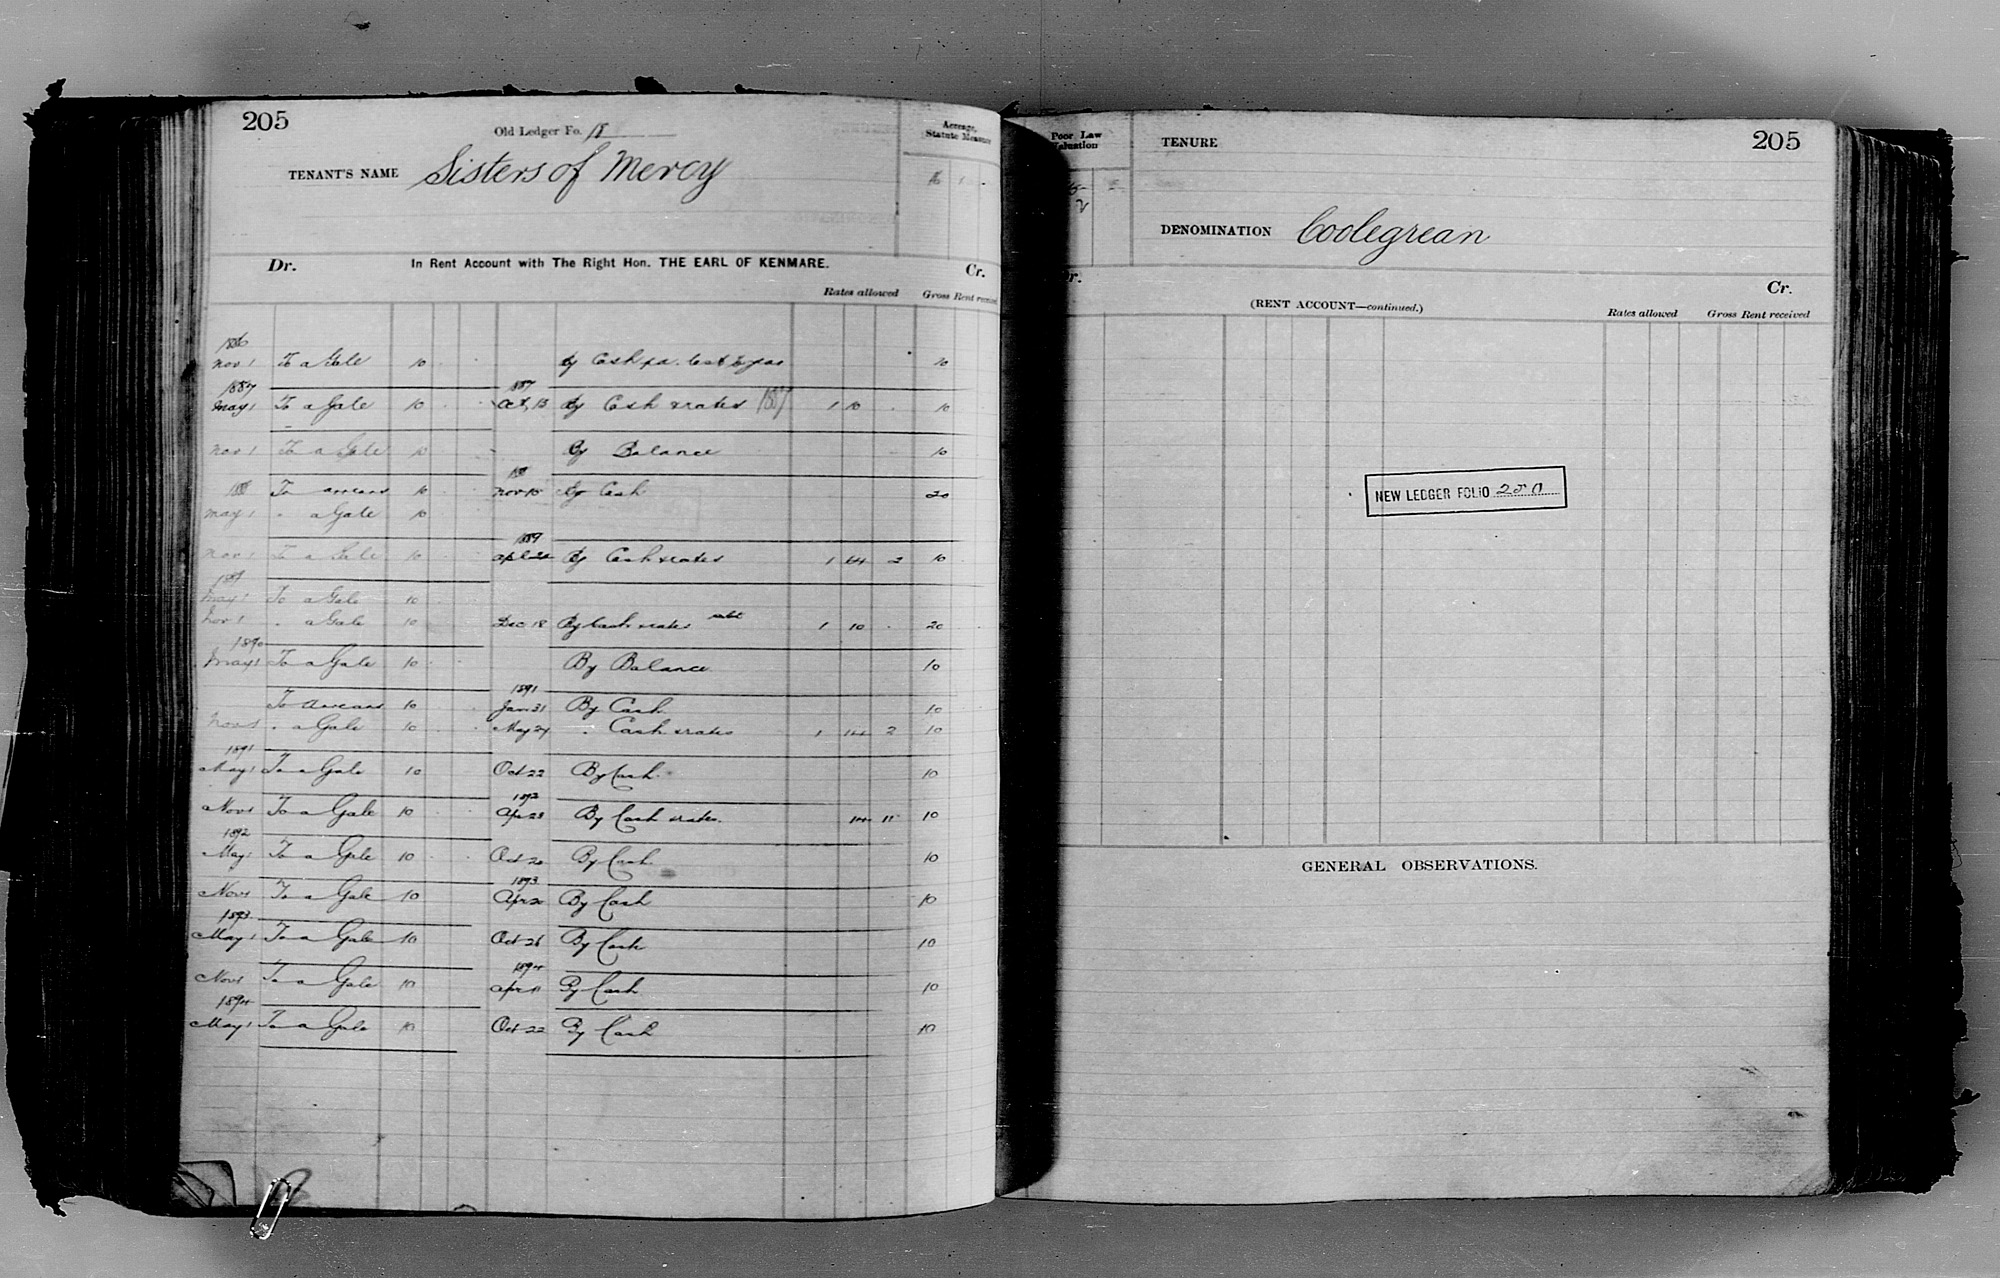 205
Old Ledger Fo. 18
TENANT'S NAME Sisters of Mercy
Acreage, Statute Measure
Dr. In Rent Account with The Right Hon. THE EARL OF KENMARE. Cr.
Rates allowed Gross Rent received
1886
Nov 1 To a Gale 10 By Cash 10
1887 1887
May 1 To a Gale 10 Oct 13 By Cash & rates 1887 1 10 - 10
Nov 1 To a Gale 10 By Balance 10
188 188
To arrears 10 Nov 15 By Cash 20
May 1 " a Gale 10
1889
Nov 1 To a Gale 10 Apl By Cash & rates 1 14 2 10
1889
May 1 To a Gale 10
Nov 1 " a Gale 10 Dec 18 By Cash & rates 1 10 - 20
1890
May 1 To a Gale 10 By Balance 10
1891
To Arrears 10 Jan 31 By Cash 10
Nov 1 " a Gale 10 May 27 " Cash & rates 1 14 2 10
1891
May 1 To a Gale 10 Oct 22 By Cash 10
1892
Nov 1 To a Gale 10 Apr 23 By Cash & rates 14 11 10
1892
May 1 To a Gale 10 Oct 20 By Cash 10
1893
Nov 1 To a Gale 10 Apr 20 By Cash 10
1893
May 1 To a Gale 10 Oct 26 By Cash 10
1894
Nov 1 To a Gale 10 Apr 11 By Cash 10
1894
May 1 To a Gale 10 Oct 22 By Cash 10
Poor Law Valuation
TENURE
205
DENOMINATION Coolegrean
Cr.
(RENT ACCOUNT—continued.) Rates allowed Gross Rent received
NEW LEDGER FOLIO 280
GENERAL OBSERVATIONS.